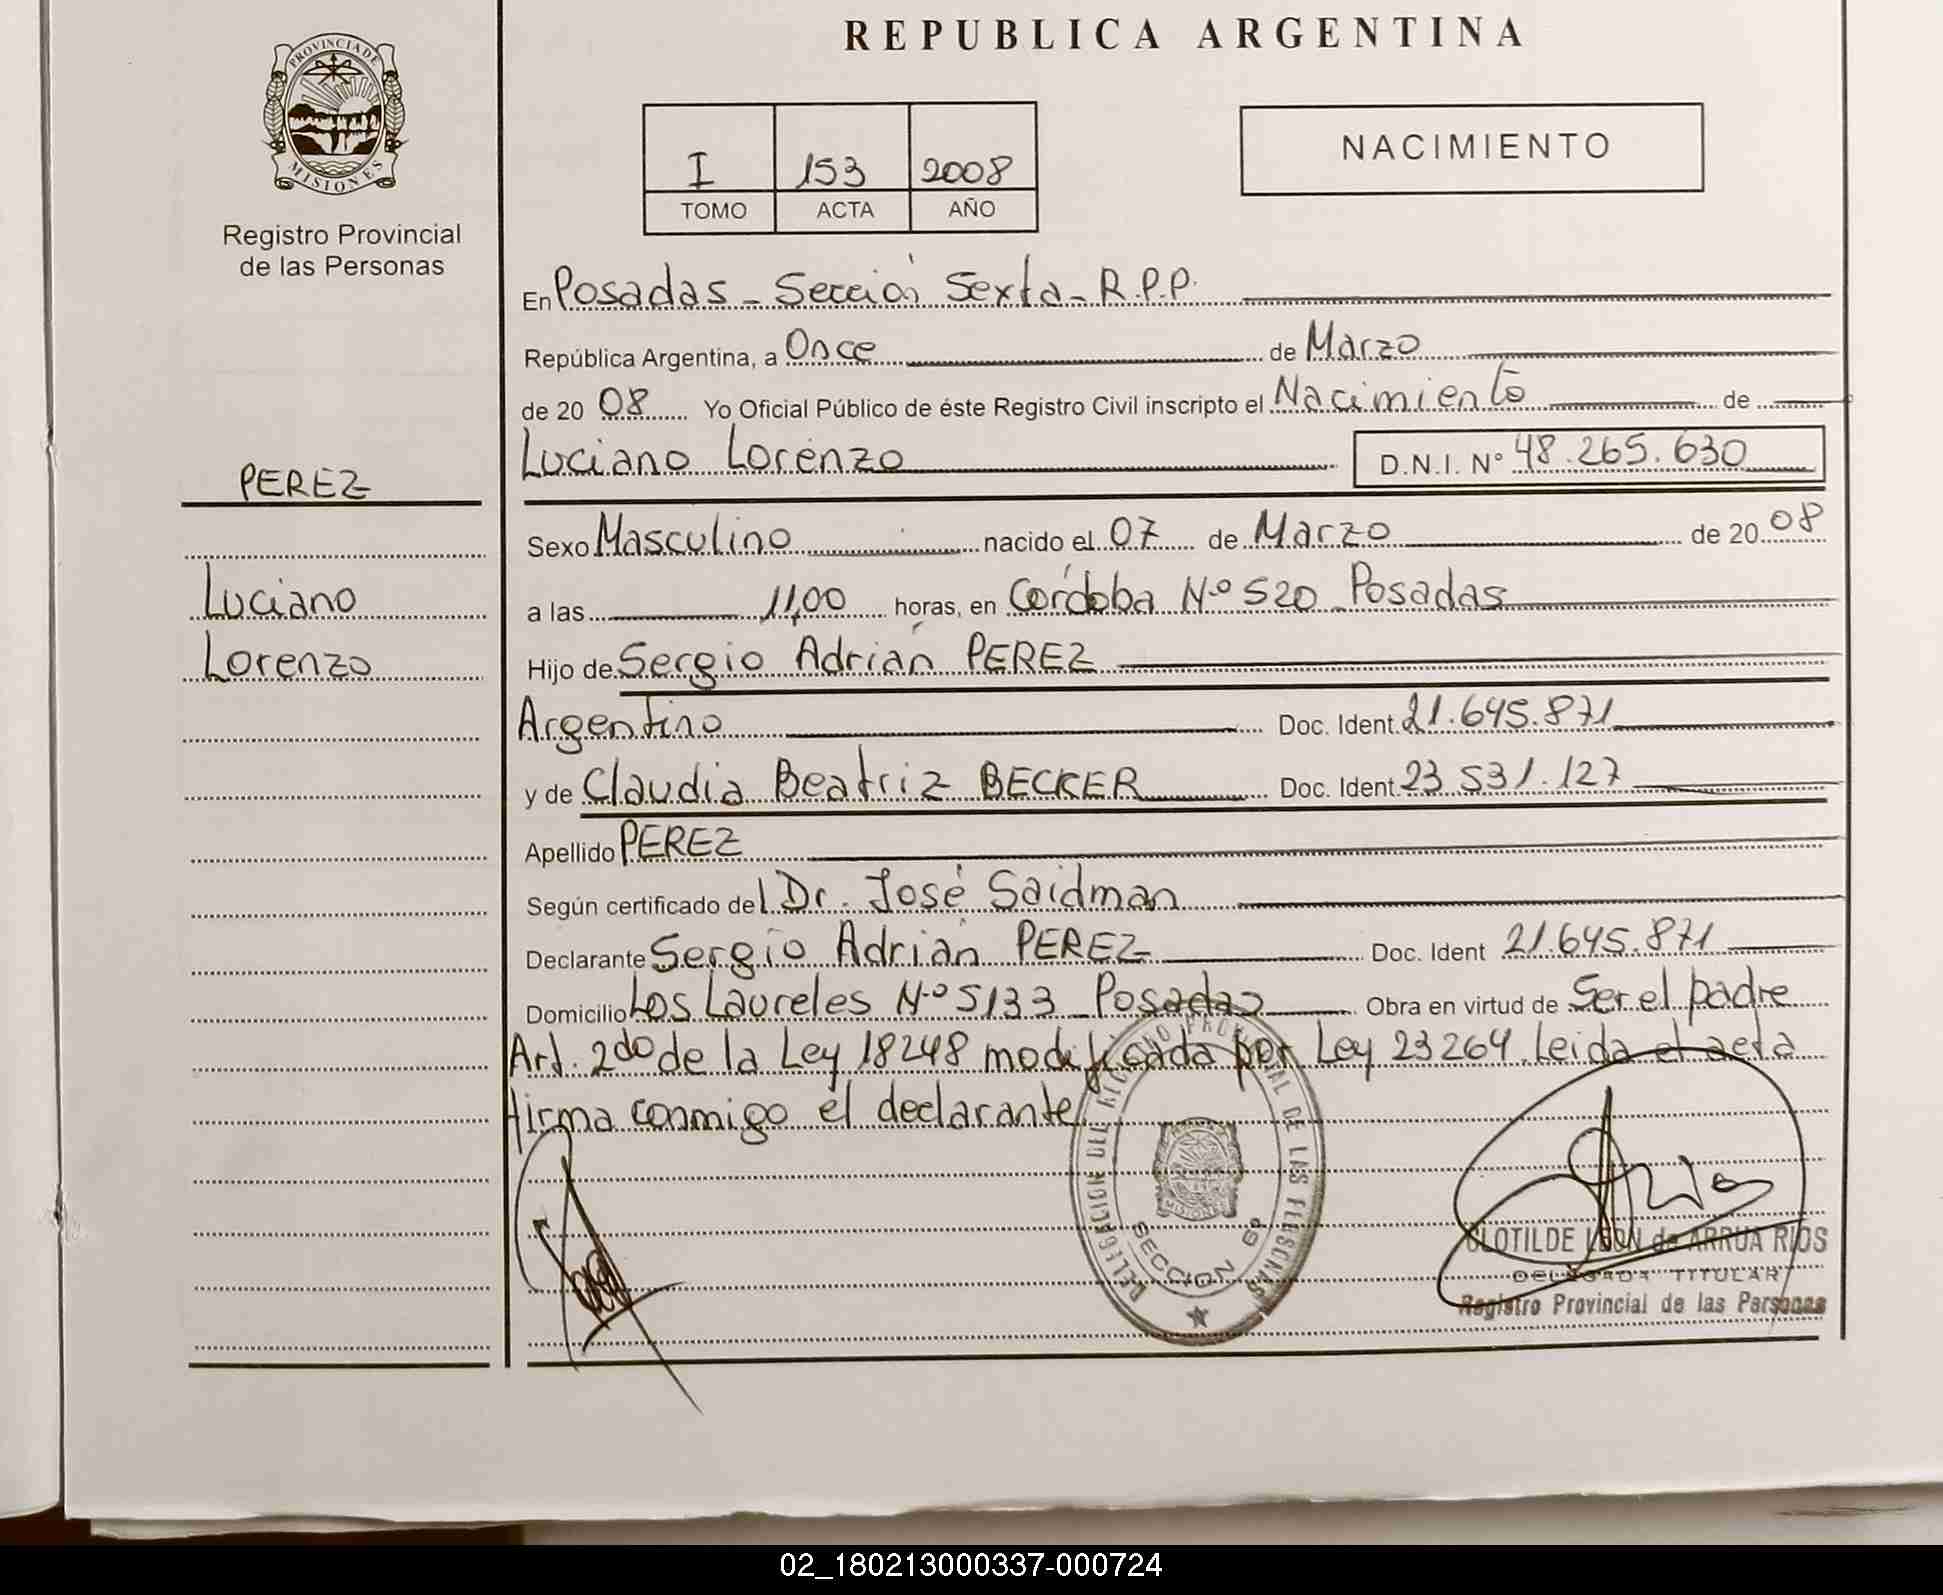 REPUBLICA ARGENTINA
PROVINCIA DE
MISIONES
Registro Provincial
de las Personas
I 153 2008
TOMO ACTA AÑO
NACIMIENTO
En Posadas - Sección Sexta - R.P.P.
República Argentina, a Once de Marzo
de 20 08 Yo Oficial Público de éste Registro Civil inscripto el Nacimiento de
Luciano Lorenzo D.N.I. Nº 48.265.630
PEREZ
Luciano
Lorenzo
Sexo Masculino nacido el 07 de Marzo de 20 08
a las 11,00 horas, en Córdoba Nº 520 Posadas
Hijo de Sergio Adrián PEREZ
Argentino Doc. Ident. 21.645.871
y de Claudia Beatriz BECKER Doc. Ident. 23 531.127
Apellido PEREZ
Según certificado del Dr. José Saidman
Declarante Sergio Adrián PEREZ Doc. Ident 21.645.871
Domicilio Los Laureles Nº 5133 Posadas Obra en virtud de Ser el padre
Art. 2do de la Ley 18248 modificada por Ley 23264. Leida el acta
firma conmigo el declarante.
DELEGACION DEL REGISTRO PROVINCIAL DE LAS PERSONAS
MISIONES
SECCION 6ª
CLOTILDE LEON de ARRUA RIOS
DELEGADA TITULAR
Registro Provincial de las Personas
02_180213000337-000724